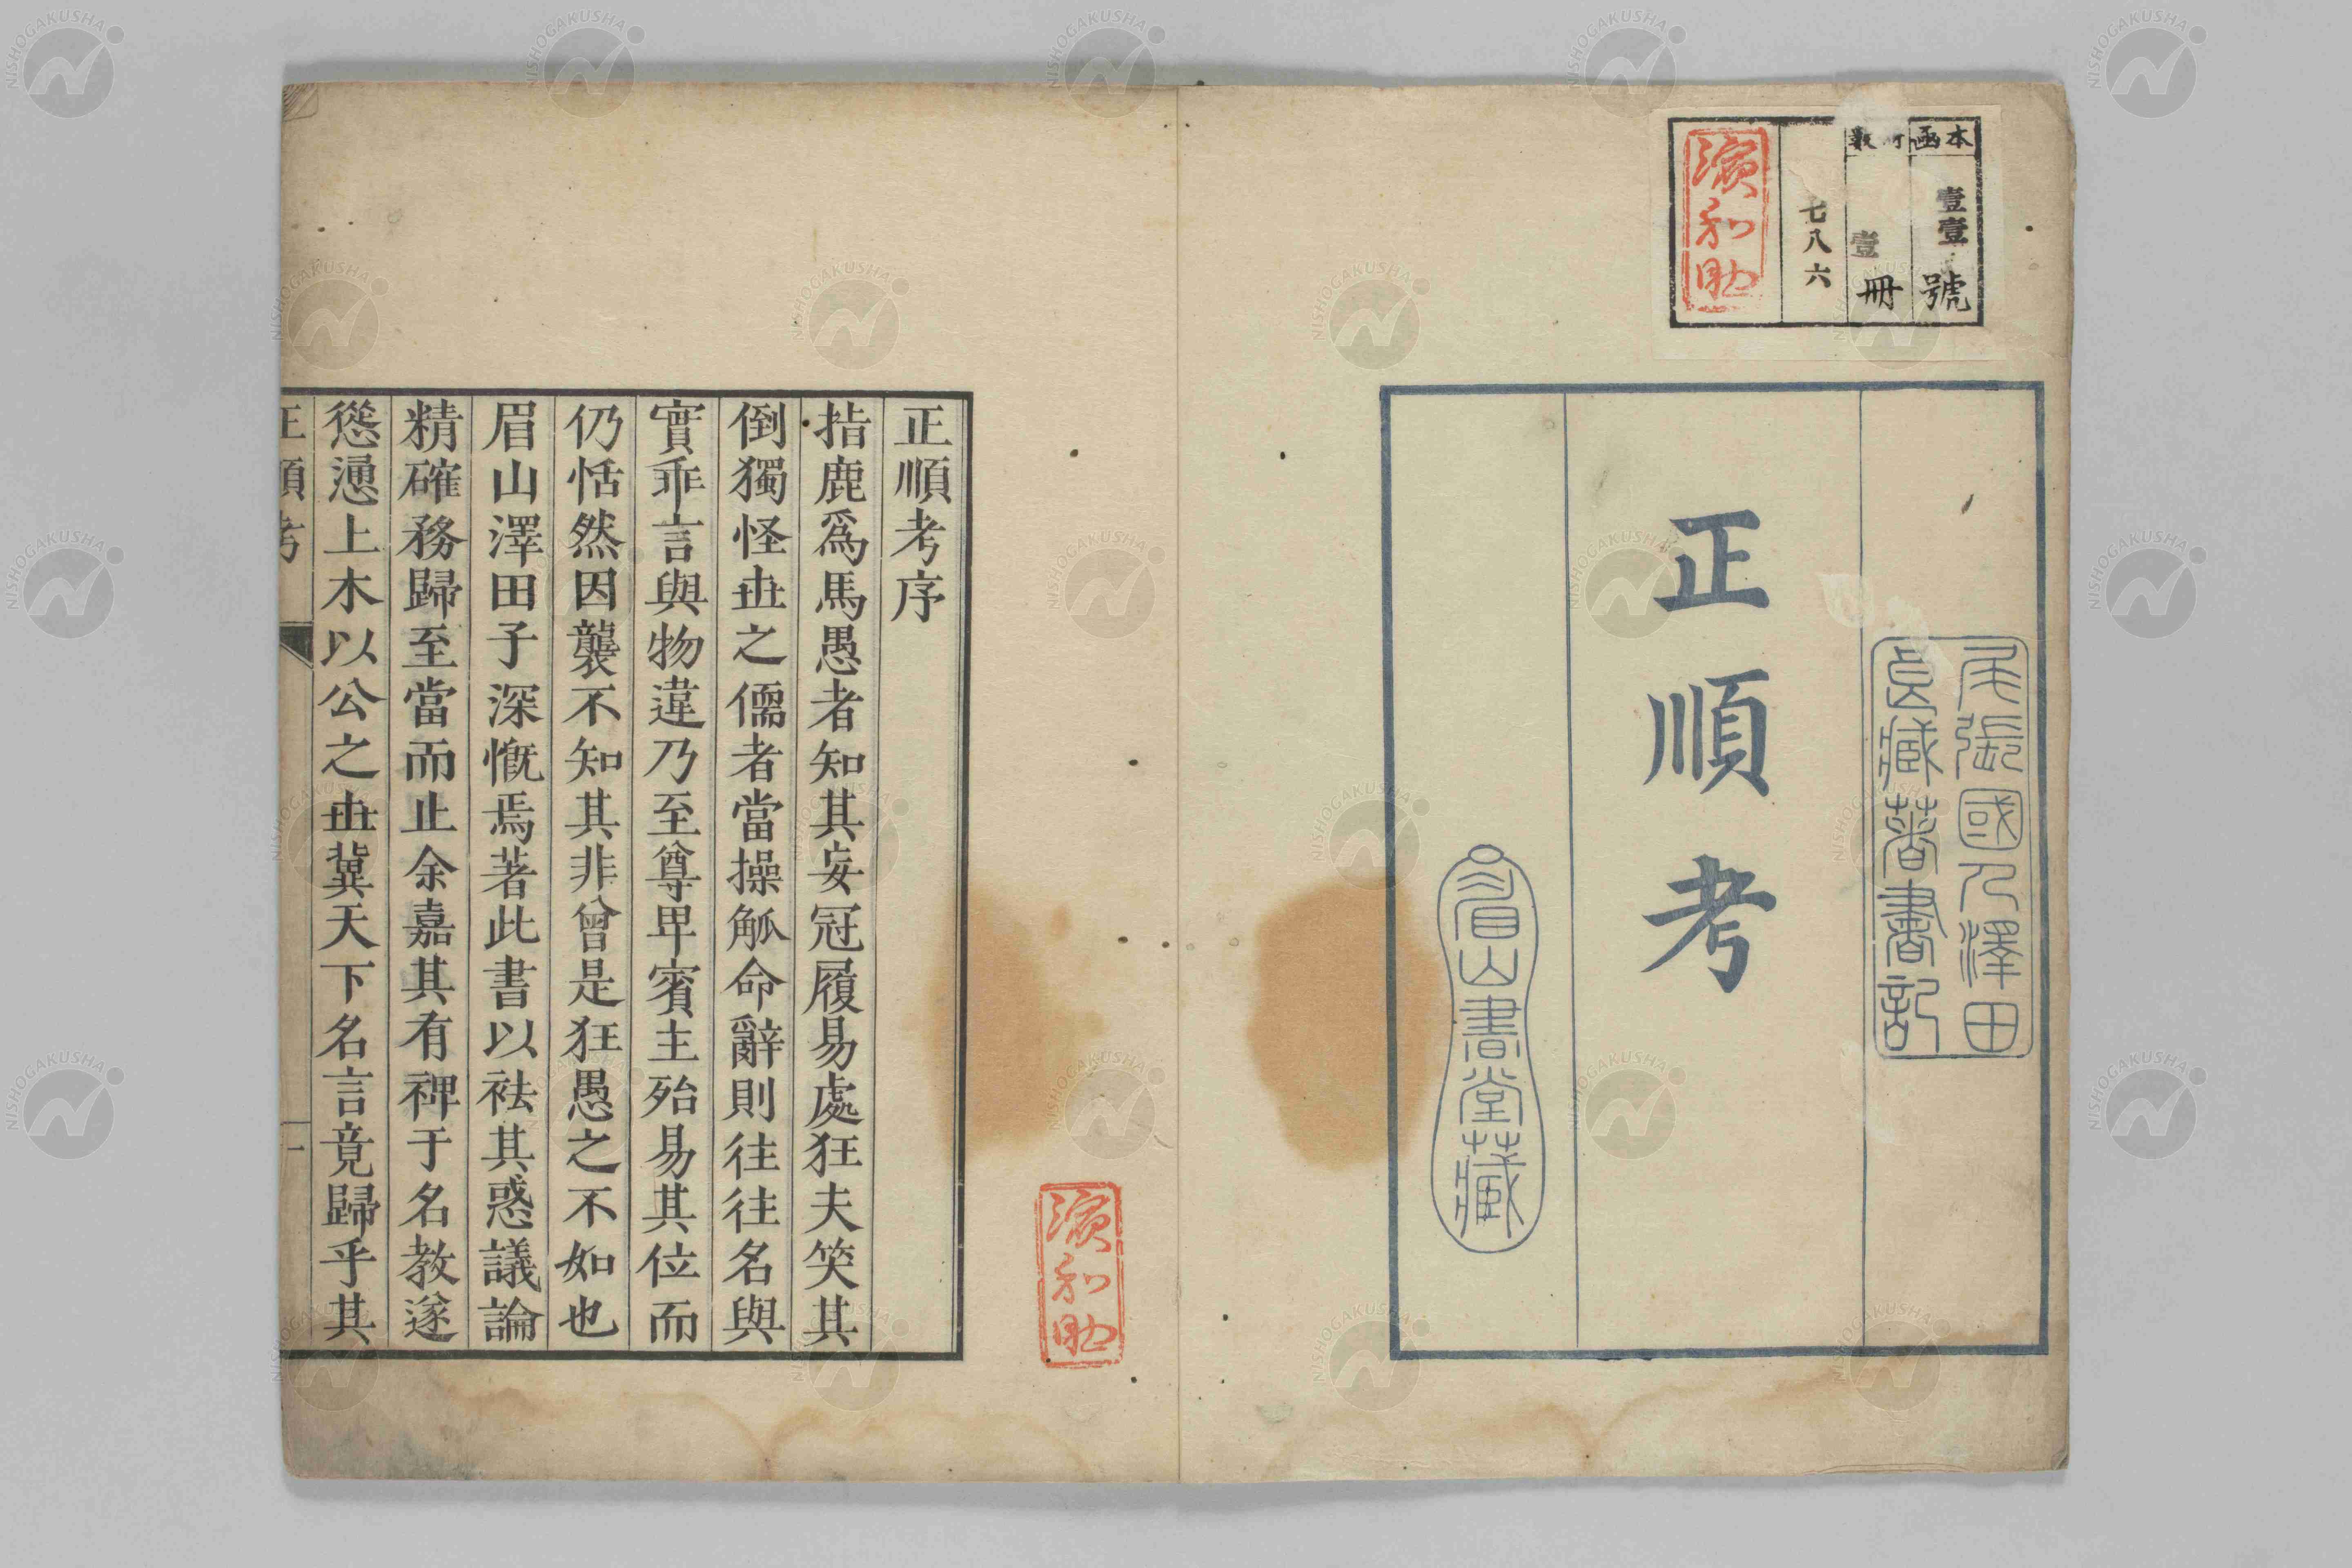 本函
壹壹號
壹冊
七八六
濵和助
尾張國人澤田
眉山書堂藏
正順考
濵和助
正順考序
指鹿爲馬愚者知其妄冠履易處狂夫笑其
倒獨怪丗之儒者當操觚命辭則往往名與
實乖言與物違乃至尊卑賓主殆易其位而
仍恬然因襲不知其非曾是狂愚之不如也
眉山澤田子深慨焉著此書以袪其惑議論
精確務歸至當而止余嘉其有裨于名教遂
慫慂上木以公之丗冀天下名言竟歸乎其
正順考
一
NISHOGAKUSHA